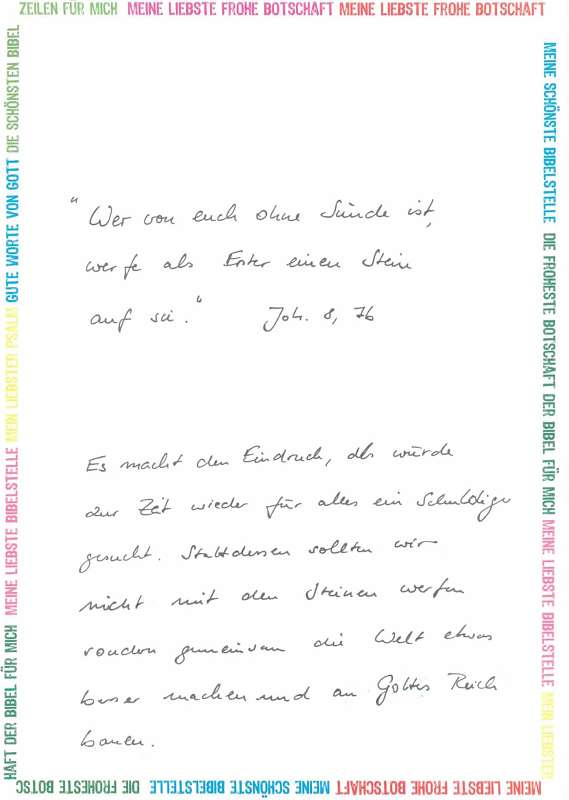 ZEILEN FÜR MICH MEINE LIEBSTE FROHE BOTSCHAFT MEINE LIEBSTE FROHE BOTSCHAFT
MEINE SCHÖNSTE BIBELSTELLE DIE FROHESTE BOTSCHAFT DER BIBEL FÜR MICH MEINE LIEBSTE BIBELSTELLE MEIN LIEBSTER
"Wer von euch ohne Sünde ist,
werfe als Erster einen Stein
auf sie." Joh. 8, 7b
Es macht den Eindruck, als würde
zur Zeit wieder für alles ein Schuldiger
gesucht. Stattdessen sollten wir
nicht mit den Steinen werfen
sondern gemeinsam die Welt etwas
besser machen und an Gottes Reich
bauen.
MEINE LIEBSTE FROHE BOTSCHAFT MEINE SCHÖNSTE BIBELSTELLE DIE FROHESTE BOTSC
HAFT DER BIBEL FÜR MICH MEINE LIEBSTE BIBELSTELLE MEIN LIEBSTER PSALM GUTE WORTE VON GOTT DIE SCHÖNSTEN BIBEL